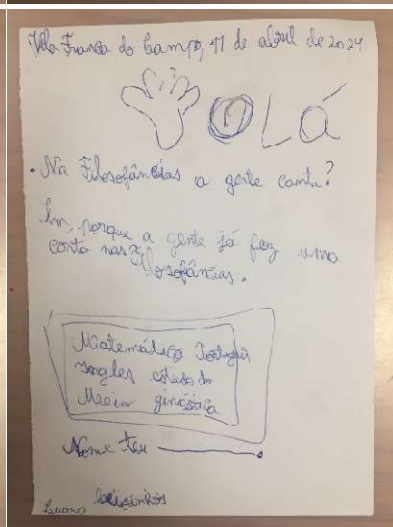 Vila Franca do Campo, 17 de abril de 2024
OLÁ
• Na Filosofâncias a gente canta?
Sim, porque a gente já fez uma
conto nas Filosofâncias.
Matemática Português
Ingles estudo do
Meio ginástica
Nome teu
beijinhos